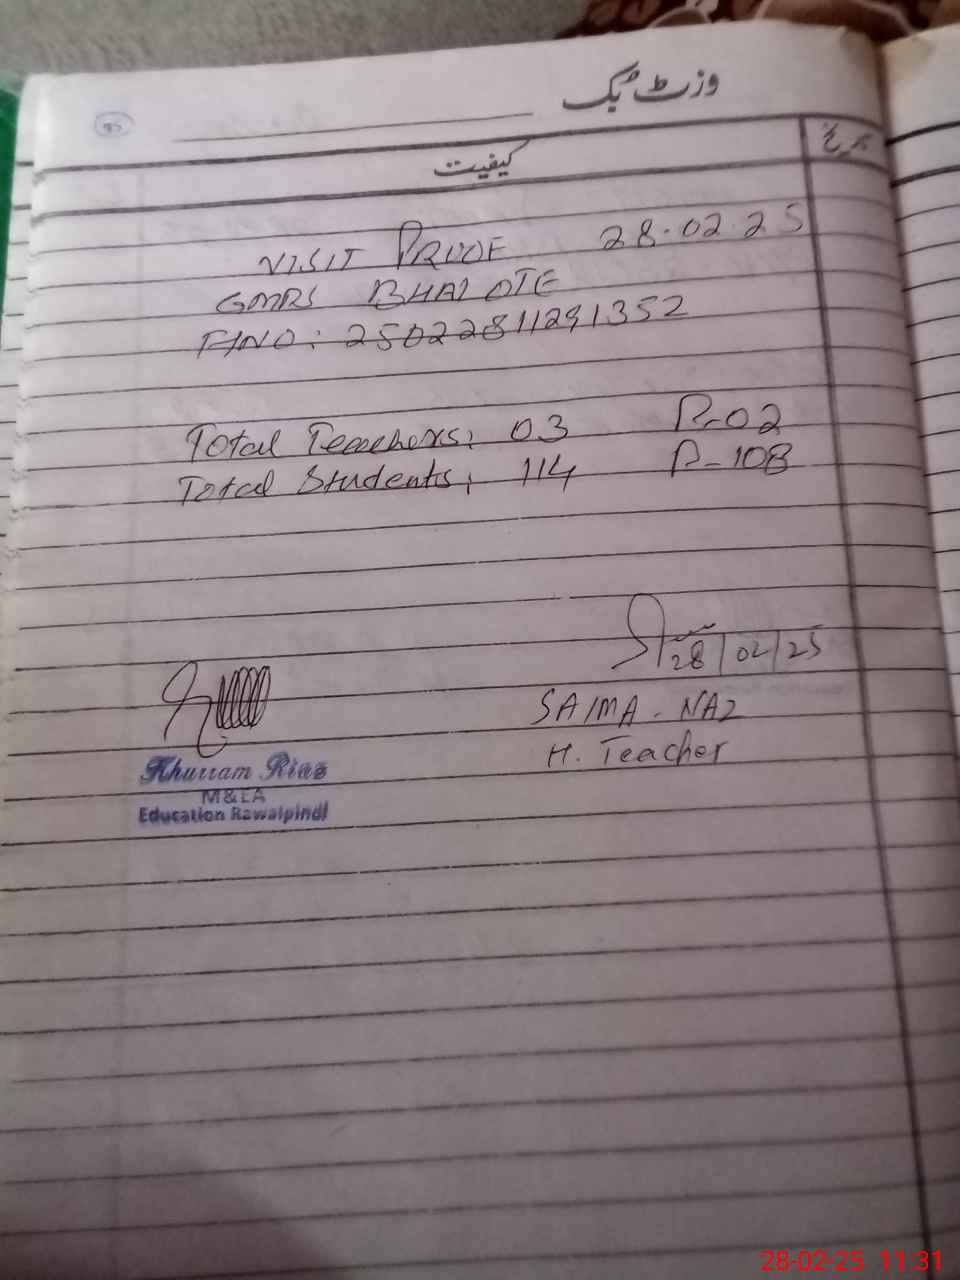 وزٹ بک
95
کیفیت
تاریخ
VISIT PROOF 28.02.25
GMPS BHALOTE
FINO: 25022811291352
Total Teachers: 03 P-02
Total Students: 114 P-108
28/02/25
SAIMA. NAZ
H. Teacher
Khurram Riaz
M&EA
Education Rawalpindi
28-02-25 11:31